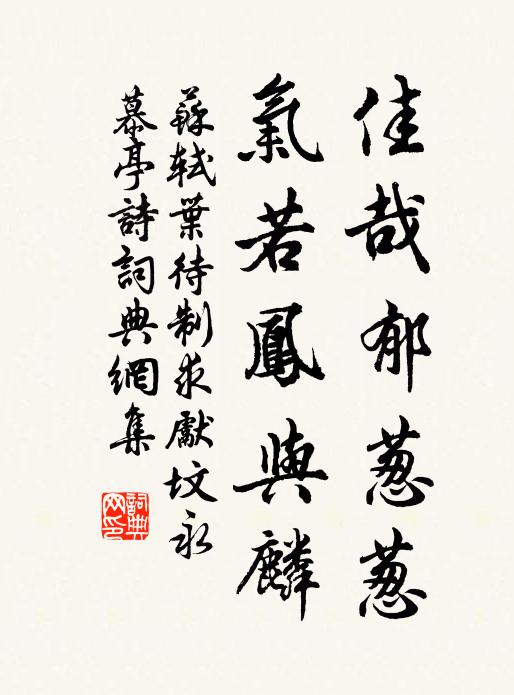 佳哉郁葱葱
氣若鳳與麟
蘇軾葉待制求獻墳永
慕亭詩詞典網集
詞典
网印